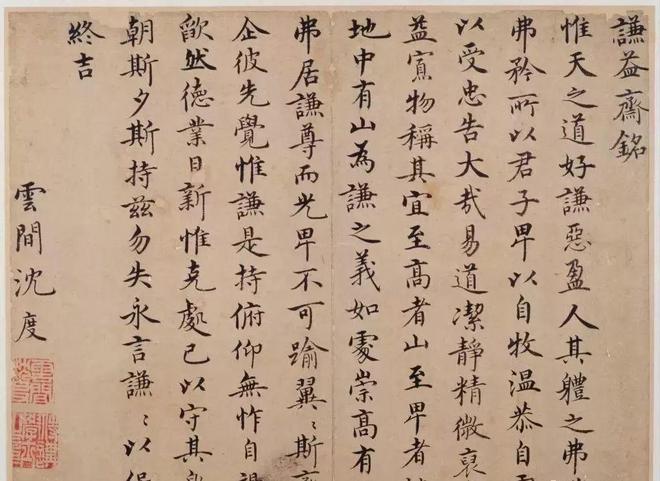 謙益齋銘
惟天之道好謙惡盈人其軆之弗
弗矜所以君子卑以自牧溫恭自
以受忠告大哉易道潔靜精微裒
益寡物稱其宜至高者山至卑者
地中有山為謙之義如處崇高有
弗居謙尊而光卑不可踰翼〻斯
企彼先覺惟謙是持俯仰無怍自
欿然德業日新惟克處己以守其
朝斯夕斯持茲勿失永言謙〻以
終吉
雲間沈度